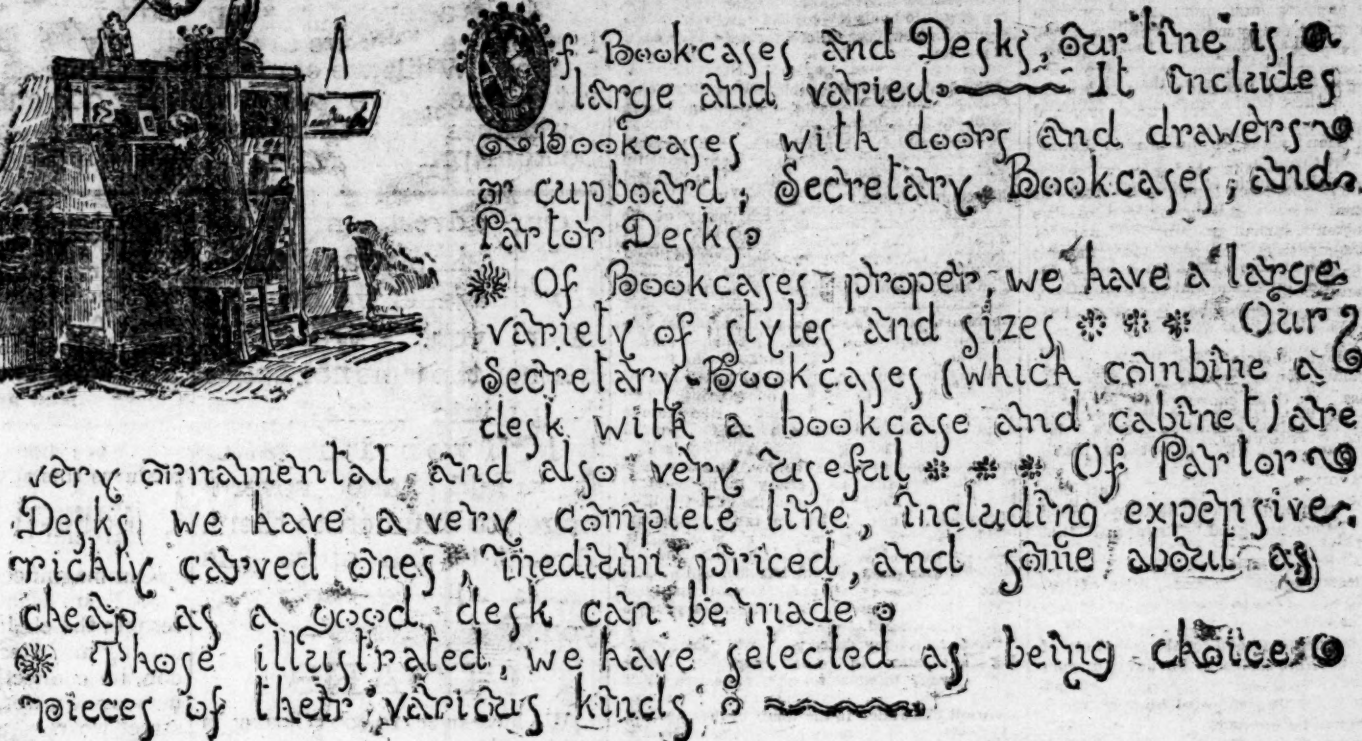 Of Bookcases and Desks, our line is a
large and varied. It includes
Bookcases with doors and drawers
or cupboard; Secretary Bookcases; and
Parlor Desks.
Of Bookcases proper, we have a large
variety of styles and sizes * * * Our
Secretary-Bookcases (which combine a
desk with a bookcase and cabinet) are
very ornamental and also very useful * * * Of Parlor
Desks we have a very complete line, including expensive,
richly carved ones, medium priced, and some about as
cheap as a good desk can be made.
Those illustrated, we have selected as being choice
pieces of their various kinds.